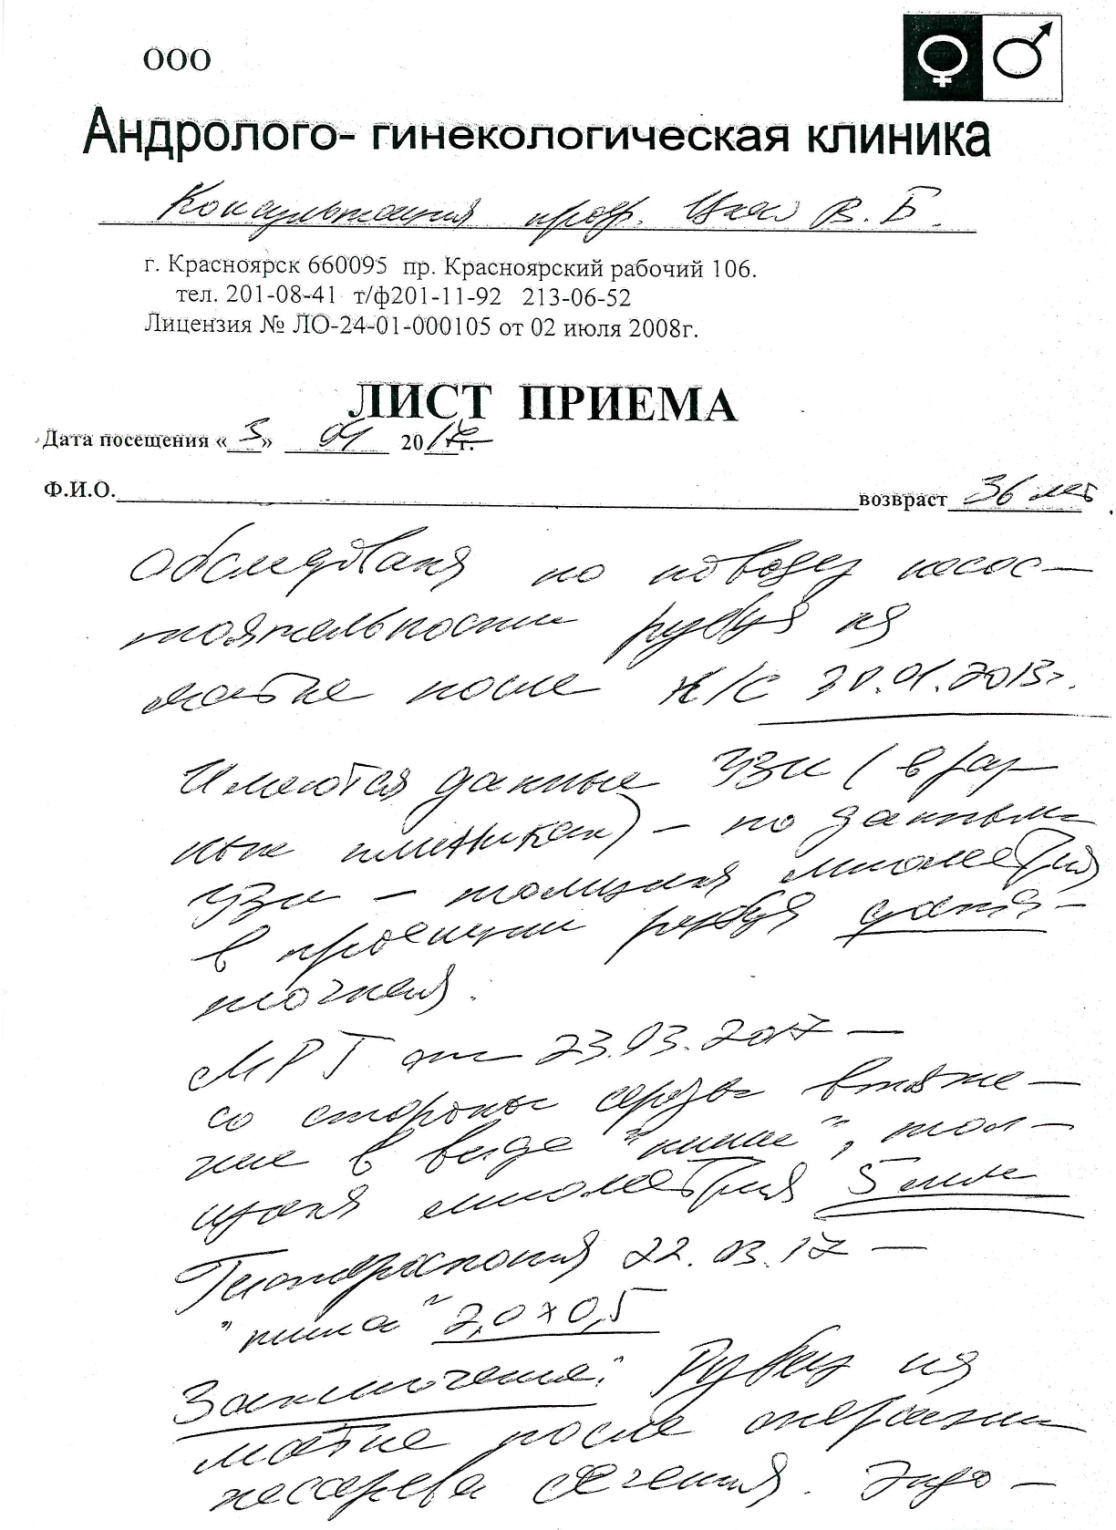 ООО
Андролого- гинекологическая клиника
Консультация проф. Цхай В.Б.
г. Красноярск 660095 пр. Красноярский рабочий 106.
тел. 201-08-41 т/ф201-11-92 213-06-52
Лицензия № ЛО-24-01-000105 от 02 июля 2008г.
ЛИСТ ПРИЕМА
Дата посещения «3» 04 2017г.
Ф.И.О. возвраст 36 лет
Обследована по поводу несос-
тоятельности рубца на
матке после К/С 30.01.2013г.
Имеются данные УЗИ (в раз
ных клиниках) – по данным
УЗИ – толщина миометрия
в проекции рубца доста-
точная.
МРТ от 23.03.2017 –
со стороны серозы втяже-
ние в виде "ниши", тол-
щина миометрия 5 мм
Гистероскопия 22.03.17 –
"ниша" 2,0 х 0,5
Заключение: Рубец на
матке после операции
кесарева сечения. Эндо-